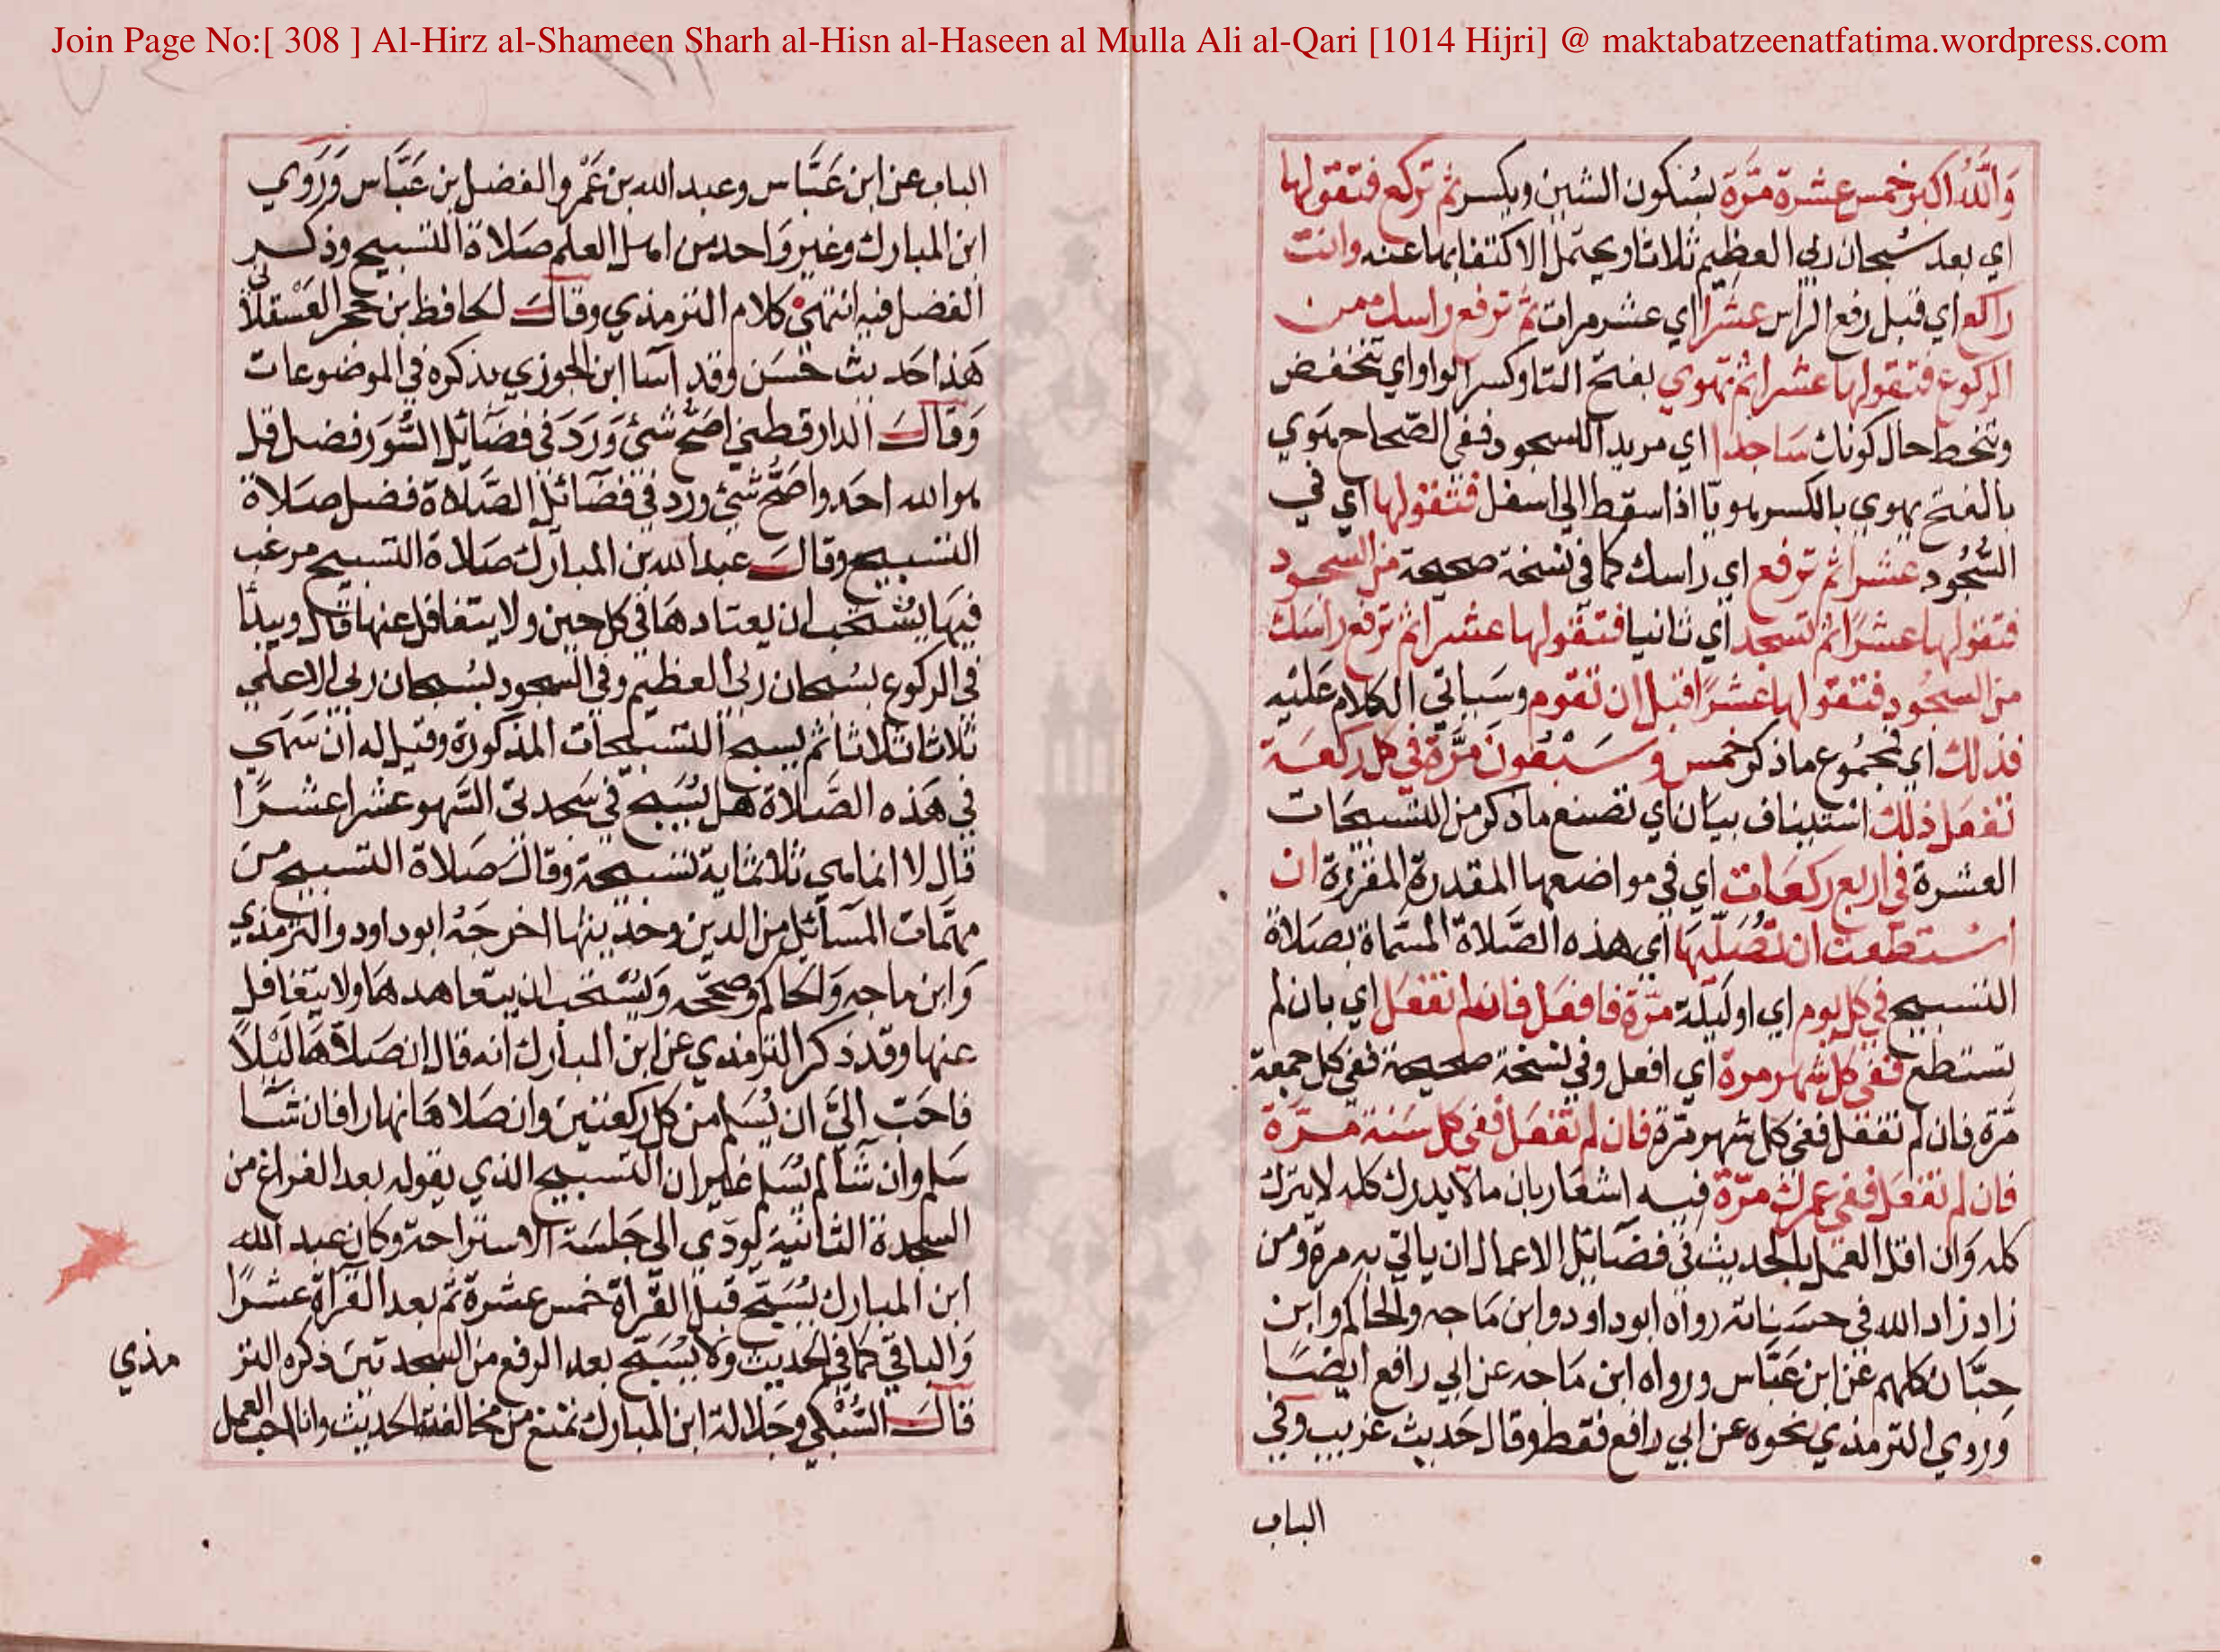 Join Page No:[ 308 ] Al-Hirz al-Shameen Sharh al-Hisn al-Haseen al Mulla Ali al-Qari [1014 Hijri] @ maktabatzeenatfatima.wordpress.com
وَاللّٰهُ اكبر خمس عشرة مرَّة بسُكون الشين ويكسر ثم تركع فتقولها
اي بعد سُبحان ربي العظيم ثلاثا ويحتمل الاكتفا بها عنه وانت
راكع اي قبل رفع الراس عشرا اي عشر مرات ثم ترفع راسك من
الركوع فتقولها عشرا ثم تهوي بفتح التا وكسر الواو اي تنخفض
وتنحط حال كونك ساجدا اي مريدا للسجود ففي الصّحاح هَوَي
بالفتح يهوي بالكسر هويّا اذا سقط الي اسفل فتقولها اي في
السُّجُود عشرا ثم ترفع اي راسك كما في نسخة صحيحة من السجود
فتقولها عشرًا ثم تسجد اي ثانيا فتقولها عشرا ثم ترفع راسك
من السجُود فتقولها عشرًا قبل ان تقوم وسَياتي الكلام عَليْه
فذلك اي مجمُوع ما ذكر خمس وسَبْعُونَ مرَّة في كل ركعَة
تفعَل ذلك استيناف بيَان اي تصنع ما ذكر من التسبيحَات
العشرة في اربع ركعَات اي في مواضعها المقدرة المقررة ان
اسْتطعت ان تُصَلّيَهَا اي هذه الصَّلاة المسَماة بصَلاة
التسبيح في كل يوم اي او ليلة مرَّة فافعَل فان لم تفعَل اي بان لم
تستطع ففي كل شهر مرة اي افعل وفي نسخة صحيحة ففي كل جمعة
مَّرة فان لم تفعل ففي كل شهر مرّة فان لم تفعَل ففي كل سَنة مَرَّة
فان لم تفعَل ففي عمرك مرّة فيه اشعَار بان ما لا يدرك كله لا يترك
كله وَان اقل العمَل بالحديث في فضَايَل الاعمال ان ياتي به مرة ومن
زاد زاد الله في حسَناته رواه ابو داود وابن مَاجه والحاكم وابن
حبَّان كلهم عَن ابن عَبَّاس ورواه ابن مَاجه عن ابي رافع ايضًا
وَروي الترمذي نحوه عَن ابي رافع فقط وقال حَديث غريب وفي
الباب
الباب عن ابن عَبَّاس وعبد الله بن عَمْرو والفضل بن عَبَّاس وَرَوي
ابن المبارك وغير وَاحد من اهل العلم صَلاة التسبيح وذكر
الفضل فيه انتهي كلام الترمذي وقال الحافظ ابن حجر العَسْقلاني
هَذا حَديث حَسَن وقد اسَا ابن الجوزي بذكره في الموضوعات
وَقال الدارقطني اصَح شئ وَرَدَ في فضَائل السُّوَر فضل قل
هو الله احَد واصَحُّ شئ ورد في فضَائل الصَّلاة فضل صَلاة
التسبيح وقال عبد الله بن المبارك صَلاة التسبيح مرغب
فيهَا يُسْتحَب ان يعتادهَا في كل حين ولا يتغافل عنها قال ويبدأ
في الركوع بسُبحان ربي العظيم وفي السجود بسُبحان ربي الاعلي
ثلاثا ثلاثا ثم يسبح التسبيحات المذكورة وقيل له ان سَهَي
في هَذه الصَّلاة هل يُسَبح في سَجدتي السَّهو عشرا عشرًا
قال لا انما هي ثلاثماية تسبيحة وقال صَلاة التسبيح من
مهمَّات المسَائل من الدين وحديثها اخرجَهُ ابو داود والترمذي
وَابن ماجه وَالحاكم وصححه وَيُسْتحَب ان يتعاهدهَا ولا يتغَافل
عنها وقد ذكر الترمذي عَن ابن المبارك انه قال ان صَلاهَا ليْلاً
فاحَبّ اليَّ ان يُسَلم من كل ركعتين وان صَلاهَا نهارا فان شَا
سَلم وان شَا لم يُسَلم غير ان التسبيح الذي يقوله بعد الفراغ من
السجدة الثانية يُودّي الي جَلسَة الاستراحة وكان عبد الله
ابن المبارك يُسَبّح قبل القرأة خمس عشرة ثم بعد القرأة عشرًا
وَالباقي كما في الحديث ولا يُسَبّح بعد الرفع من السجدتين ذكره التر
مذي
قال السُّبْكي وجَلالة ابن المبارك تمنع من مخالفته الحديث وانا احب العمل